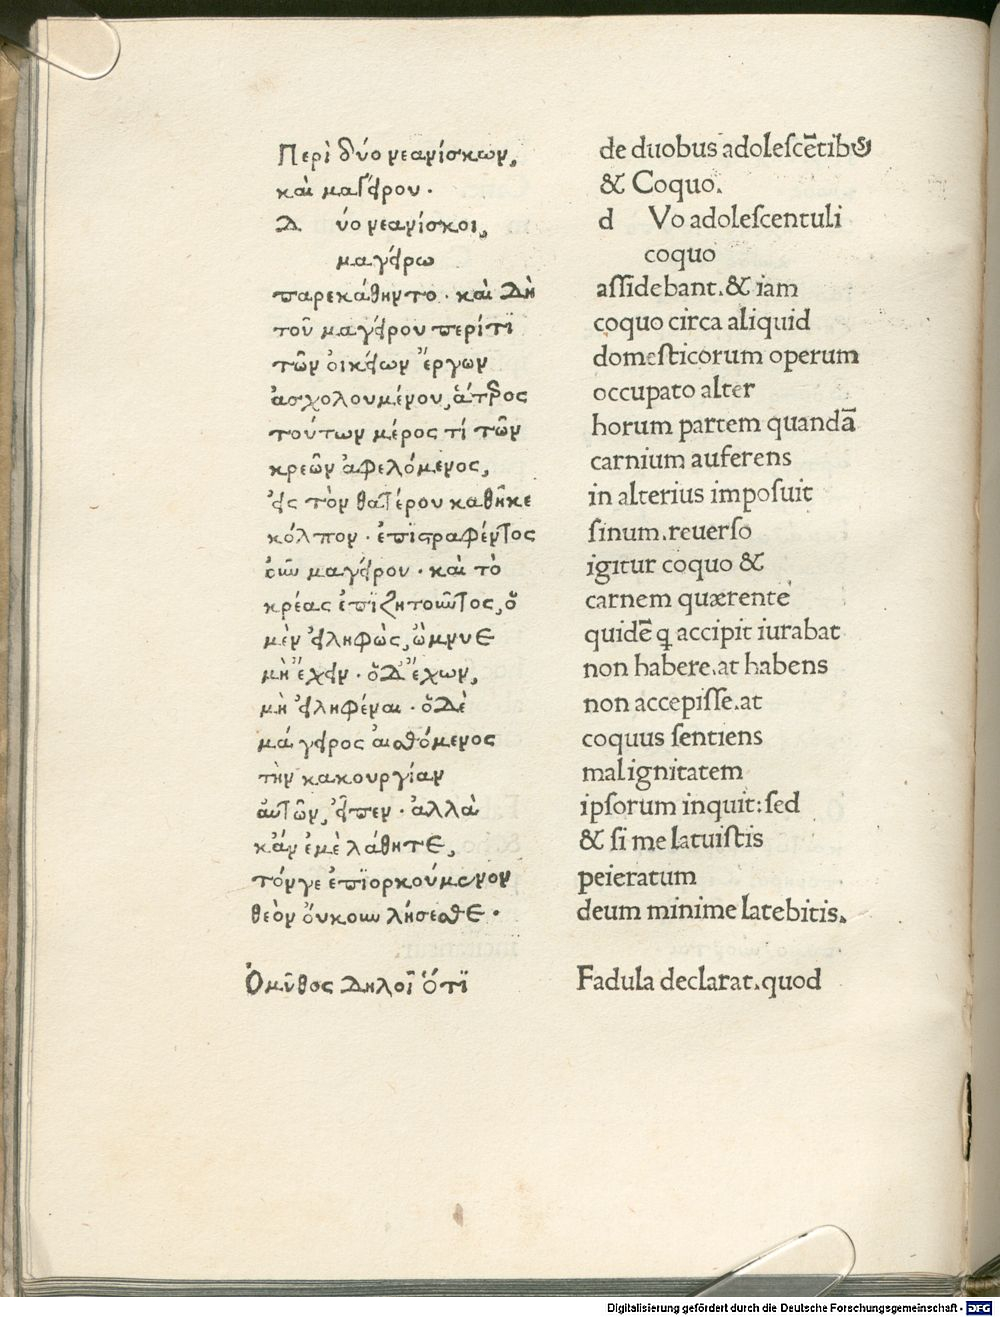 Περὶ δύο νεανίσκων,
καὶ μαγείρου.
Δ ύο νεανίσκοι,
μαγείρω
παρεκάθηντο. καὶ Δὴ
τοῦ μαγείρου περίτϊ
τῶν οἰκείων ἔργων
ἀσχολουμένου, ἅτερος
τούτων μέρος τί τῶν
κρεῶν ἀφελόμενος,
εἰς τὸν θατέρου καθῆκε
κόλπον. ἐπιστραφέντος
οὖν μαγείρου. καὶ τὸ
κρέας ἐπιζητοῦντος, ὃ
μὲν εἰληφὼς, ὤμνυε
μὴ ἔχειν. ὃ Δ' ἔχων,
μὴ εἰληφέναι. ὃ Δὲ
μάγειρος αἰσθόμενος
τὴν κακουργίαν
αὐτῶν, εἶπεν. ἀλλὰ
κἄν ἐμὲ λάθητε,
τόνγε ἐπϊορκούμενον
θεὸν ὄυκουν λήσεσθε.
Ὁ μῦθος Δηλοῖ ὅτϊ
de duobus adoleſcētibꝰ
& Coquo.
d Vo adoleſcentuli
coquo
aſſidebant.& iam
coquo circa aliquid
domeſticorum operum
occupato alter
horum partem quandā
carnium auferens
in alterius impoſuit
ſinum.reuerſo
igitur coquo &
carnem quærente
quidē ꝗ accipit iurabat
non habere.at habens
non accepiſſe.at
coquus ſentiens
malignitatem
ipſorum inquit:ſed
& ſi me latuiſtis
peieratum
deum minime latebitis.
Fadula declarat.quod
Digitalisierung gefördert durch die Deutsche Forschungsgemeinschaft - DFG